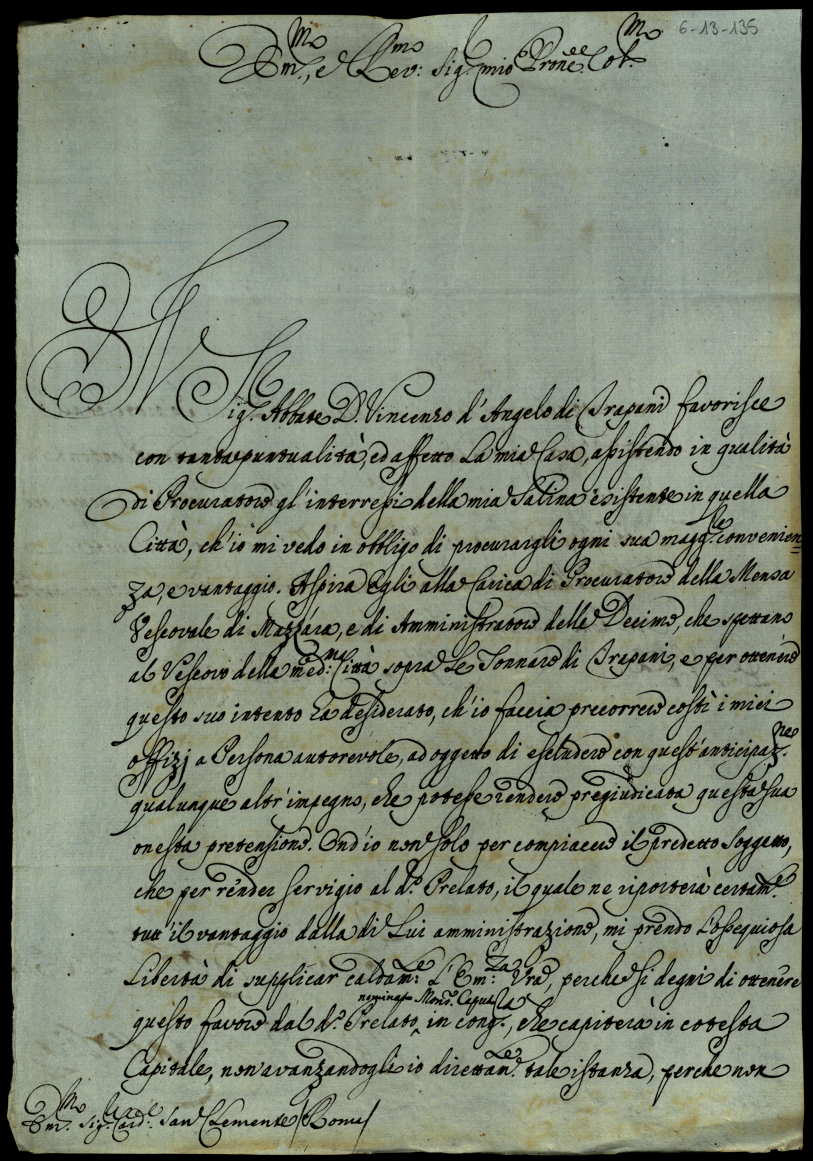 6-13-135
Em.mo, e Rev.mo Sig. mio P.rone Col.mo
Il Sig.r Abbate D. Vincenzo d'Angelo di Trapani favorisce
con tanta puntualità, ed affetto La mia Casa, assistendo in qualità
di Procuratore gl'interressi della mia Salina esistente in quella
Città, ch'io mi vedo in obbligo di procurargli ogni sua magg.re convenien=
za, e vantaggio. Aspira Egli alla Carica di Procuratore della Mensa
Vescovale di Mazzara, e di Amministratore delle Decime, che spettano
al Vescovo della med.ma Città sopra Le Tonnare di Trapani, e per ottenere
questo suo intento ha desiderato, ch'io faccia precorrere costì i miei
offizj a Persona autorevole, ad oggetto di escludere con quest'anticipaz.ne
qualunque altr'impegno, che potesse rendere pregiudicata questa sua
onesta pretensione. Ond'io non solo per compiacere il predetto Soggetto,
che per render servigio al d.o Prelato, il quale ne riporterà certam.e
tutt'il vantaggio dalla di Lui amministrazione, mi prendo L'ossequiosa
Libertà di supplicar caldam.e L'Em.za Vra, perche si degni di ottenere
questo favore dal d.o Prelato, nominato Mons.r in cong.la, che capiterà in cotesta
Capitale, non avanzandogli io direttam.e tale istanza, perche non
Em.mo Sig.r Card.le San Clemente (Roma)